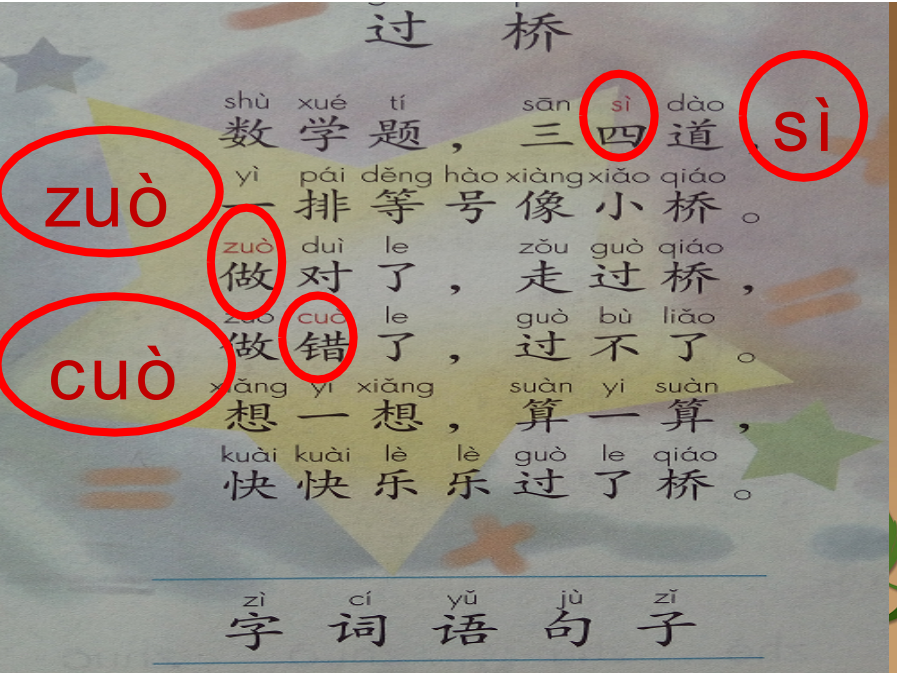 过 桥
shù xué tí sān sì dào
数 学 题 , 三 四 道 sì
yì pái děng hào xiàng xiǎo qiáo
zuò 一 排 等 号 像 小 桥 。
zuò duì le zǒu guò qiáo
做 对 了 , 走 过 桥 ,
zuò cuò le guò bù liǎo
做 错 了 , 过 不 了 。
cuò
xiǎng yi xiǎng suàn yi suàn
想 一 想 , 算 一 算 ,
kuài kuài lè lè guò le qiáo
快 快 乐 乐 过 了 桥 。
zì cí yǔ jù zǐ
字 词 语 句 子